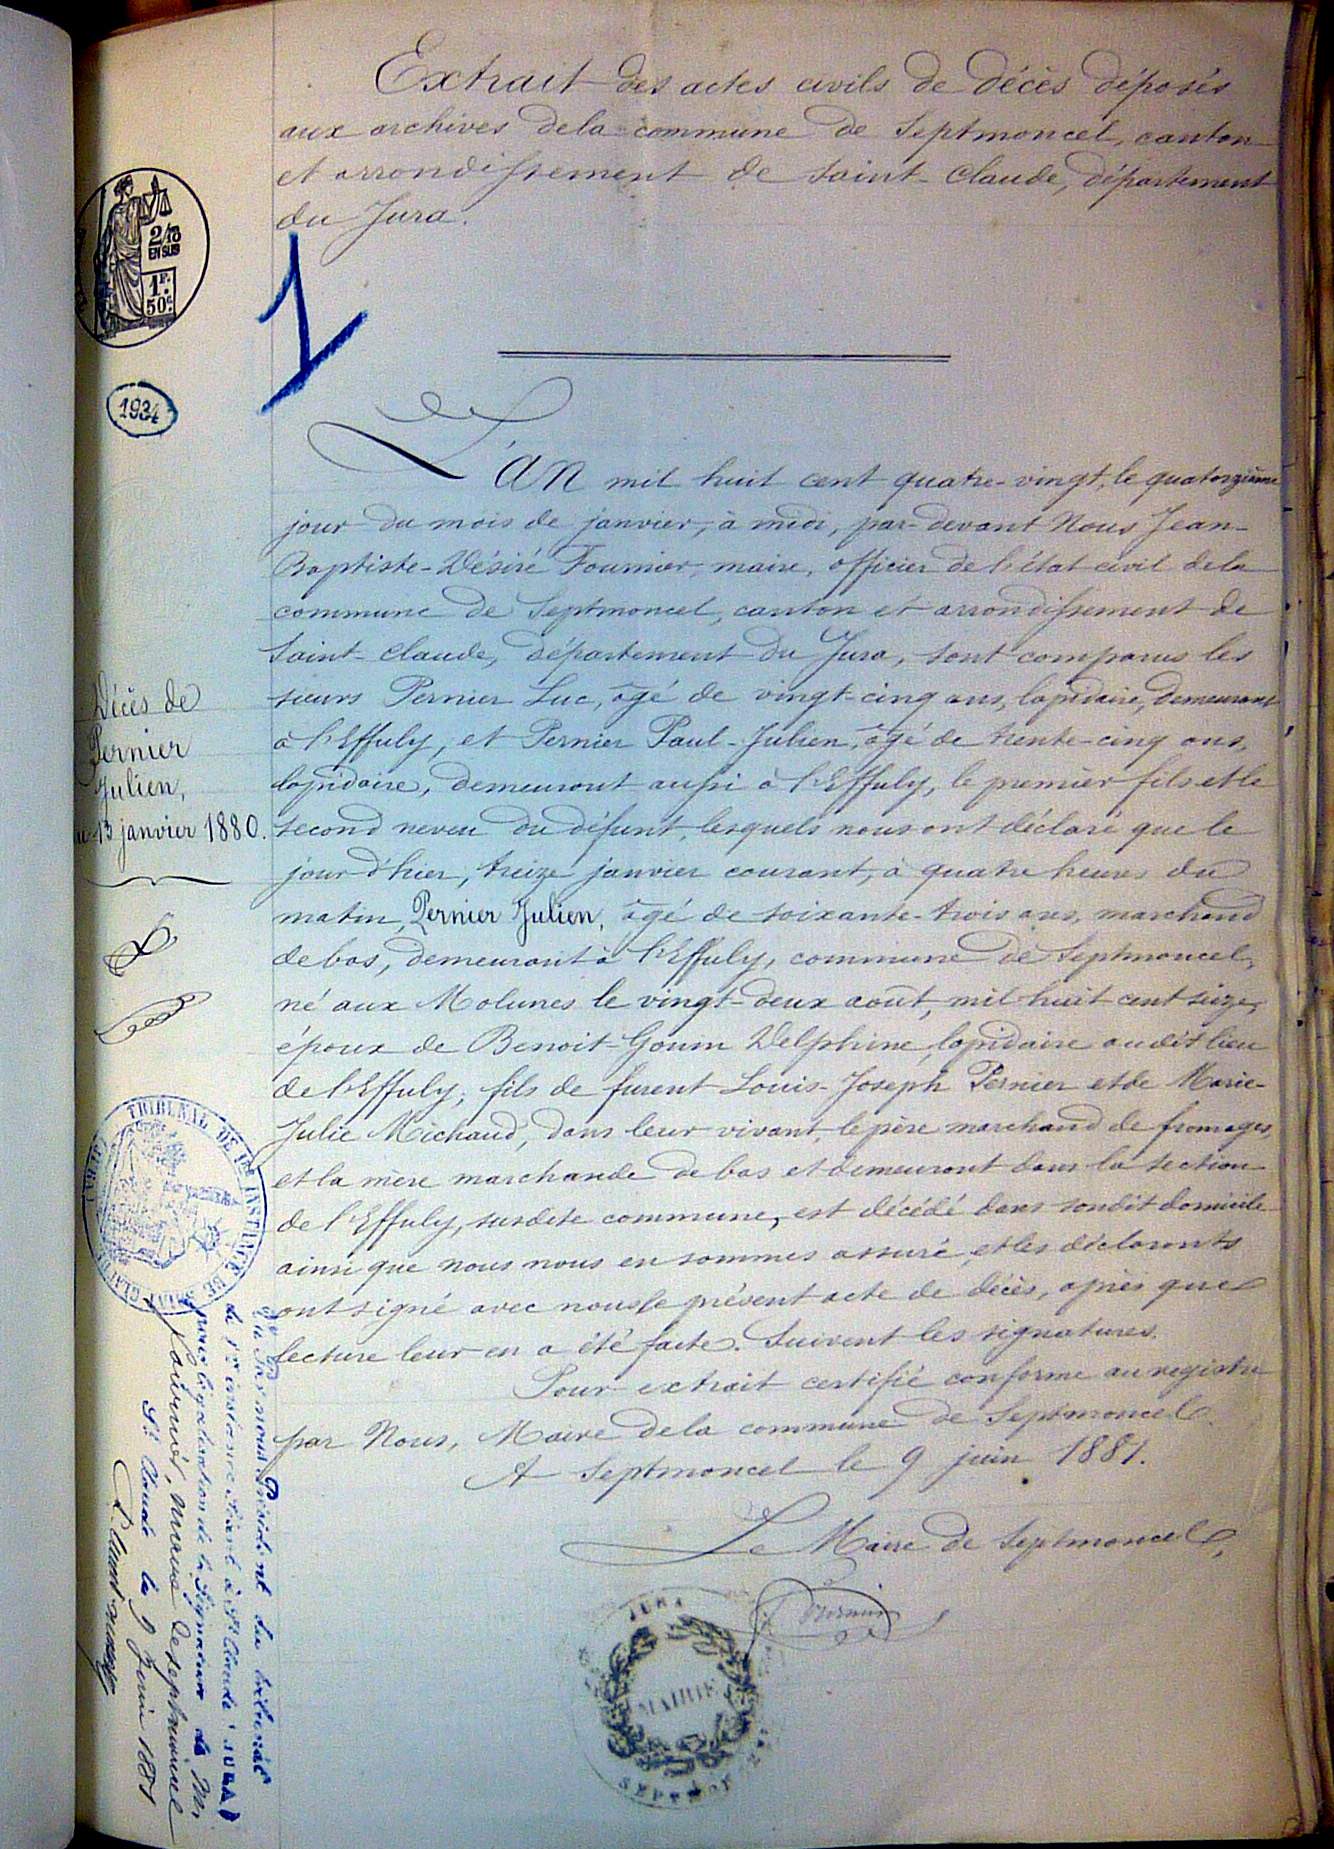 Extrait des actes civils de décès déposés
aux archives de la commune de Septmoncel, canton
et arrondissement de Saint-Claude, département
du Jura.
2/10
EN SUS
1F.
50c.
1
1934
L'an mil huit cent quatre-vingt, le quatorzième
jour du mois de janvier, à midi, par-devant Nous Jean-
Baptiste-Désiré Fournier, maire, officier de l'état civil de la
commune de Septmoncel, canton et arrondissement de
Saint-Claude, département du Jura, sont comparus les
sieurs Pernier Luc, âgé de vingt-cinq ans, lapidaire, demeurant
à l'Effuly, et Pernier Paul-Julien, âgé de trente-cinq ans,
lapidaire, demeurant aussi à l'Effuly, le premier fils et le
second neveu du défunt, lesquels nous ont déclaré que le
jour d'hier, treize janvier courant, à quatre heures du
matin, Pernier Julien, âgé de soixante-trois ans, marchand
de bas, demeurant à l'Effuly, commune de Septmoncel,
né aux Molunes le vingt-deux août, mil huit cent seize,
époux de Benoit-Gonin Delphine, lapidaire audit lieu
de l'Effuly; fils de furent Louis-Joseph Pernier et de Marie-
Julie Michaud, dans leur vivant, le père marchand de fromages,
et la mère marchande de bas et demeurant dans la section
de l'Effuly, susdite commune, est décédé dans sondit domicile
ainsi que nous nous en sommes assuré, et les déclarants
ont signé avec nous le présent acte de décès, après que
lecture leur en a été faite. Suivent les signatures.
Pour extrait certifié conforme au registre
par Nous, Maire de la commune de Septmoncel.
A Septmoncel le 9 juin 1881.
Le Maire de Septmoncel,
Décès de
Pernier
Julien,
13 janvier 1880.
TRIBUNAL DE 1re INSTANCE DE SAINT CLAUDE (JURA)
Président du tribunal
de 1re instance séant à St Claude (JURA)
pour légalisation de la Signature de Mr
Fournier, maire de Septmoncel
St Claude le 9 Juin 1881
JURA
MAIRIE
SEPTMONCEL